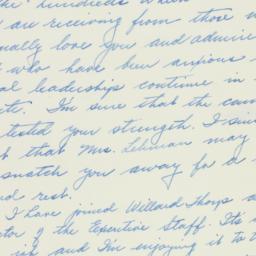 the hundreds which
are receiving from those w
nally love you and admire
who have been anxious
al leadership continue in
te. I'm sure that the cam
tested your strength. I sin
t that Mrs. Lehman may
snatch you away for a
d rest.
I have joined Willard Thorp a
tor of the Executive Staff. It's
ish and I'm enjoying it to